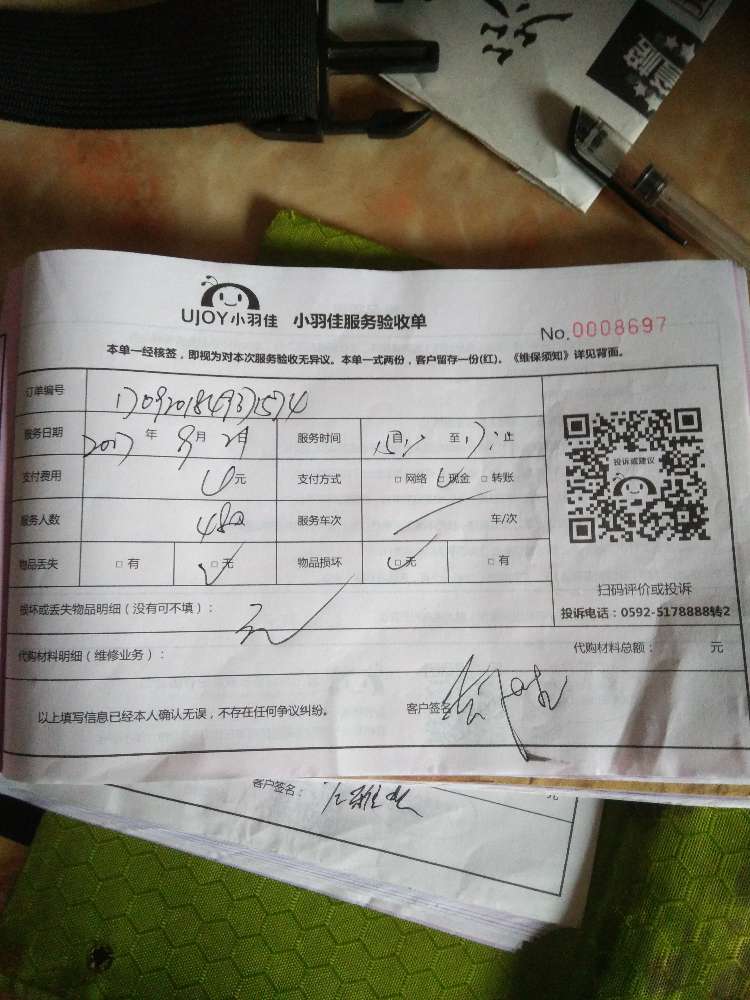 UJOY小羽佳 小羽佳服务验收单
No.0008697
本单一经核签，即视为对本次服务验收无异议。本单一式两份，客户留存一份(红)。《维保须知》详见背面。
订单编号
服务日期 2017年9月21日 服务时间 自 至 17:止
支付费用 元 支付方式 □网络 □现金 □转账
服务人数 480 服务车次 车/次
物品丢失 □有 □无 物品损坏 □无 □有
损坏或丢失物品明细（没有可不填）： 无
代购材料明细（维修业务）： 代购材料总额： 元
以上填写信息已经本人确认无误，不存在任何争议纠纷。 客户签名
投诉或建议
扫码评价或投诉
投诉电话：0592-5178888转2
客户签名： 元